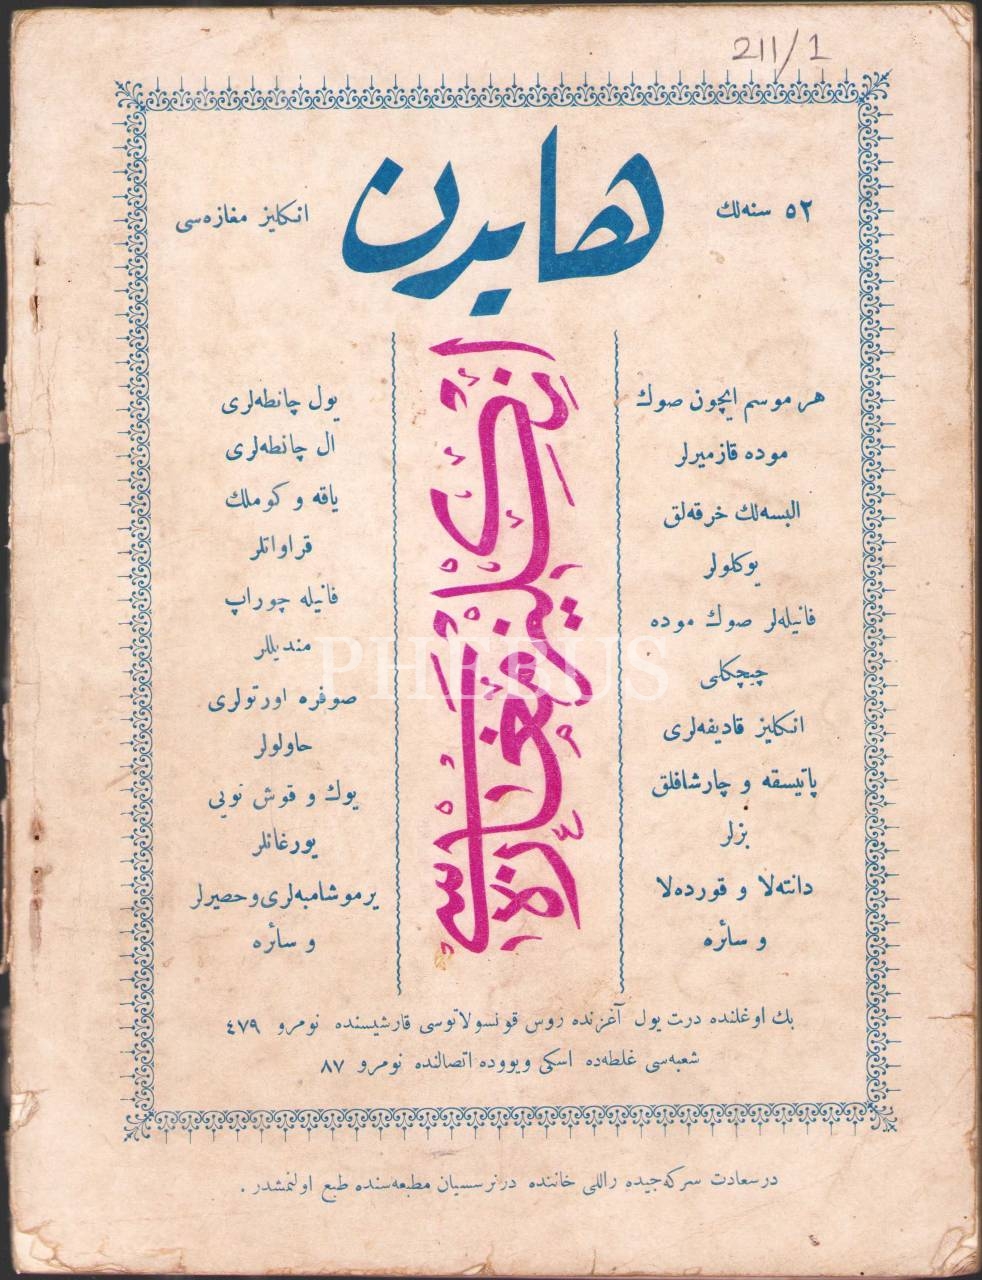 211/1
۵۲ سنه‌لك
هایدن
انكلیز مغازه‌سی
انكلیز مغازه‌سی
هر موسم ایچون صوك
موده قازمیرلر
البسه‌لك خرقه‌لق
یوكلولر
فانیله‌لر صوك موده
چیچكلی
انكلیز قادیفه‌لری
پاتیسقه و چارشافلق
بزلر
دانته‌لا و قورده‌لا
و سائره
یول چانطه‌لری
ال چانطه‌لری
یاقه و كوملك
قراواتلر
فانیله چوراپ
مندیللر
صوفره اورتولری
حاولولر
یوك و قوش توبی
یورغانلر
یر موشامبه‌لری و حصیرلر
و سائره
بك اوغلنده درت یول آغزنده روس قونسولاتوسی قارشیسنده نومرو ٤٧٩
شعبه‌سی غلطه‌ده اسكی ویووده اتصالنده نومرو ٨٧
درسعادت سركه‌جیده راللی خاننده درنرسسیان مطبعه‌سنده طبع اولنمشدر .
PHEBUS